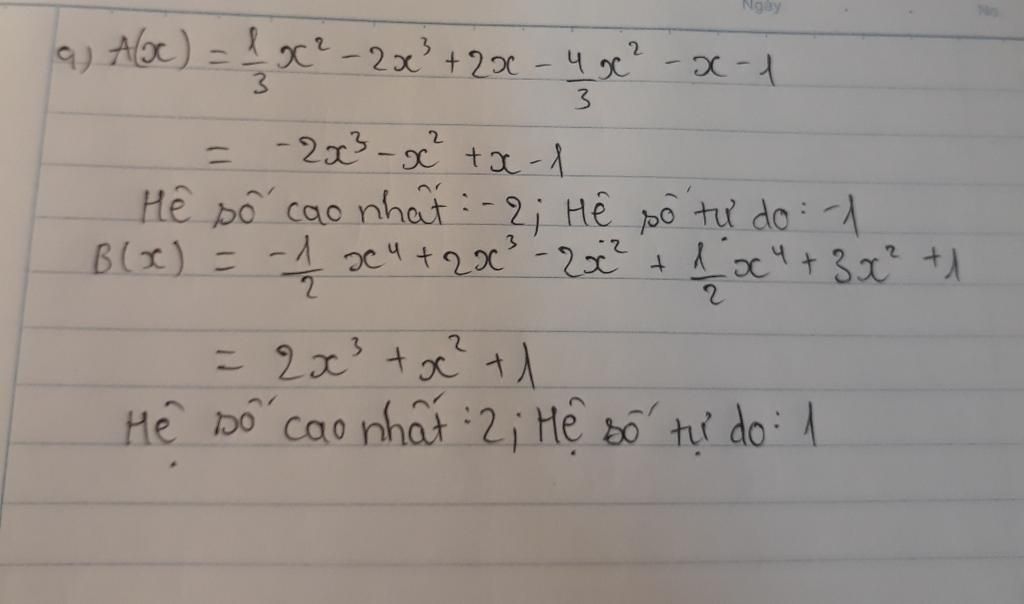 Ngày No.
a) A(x) = 1/3 x² - 2x³ + 2x - 4/3 x² - x - 1
= -2x³ - x² + x - 1
Hệ số cao nhất: -2; Hệ số tự do: -1
B(x) = -1/2 x⁴ + 2x³ - 2x² + 1/2 x⁴ + 3x² + 1
= 2x³ + x² + 1
Hệ số cao nhất: 2; Hệ số tự do: 1